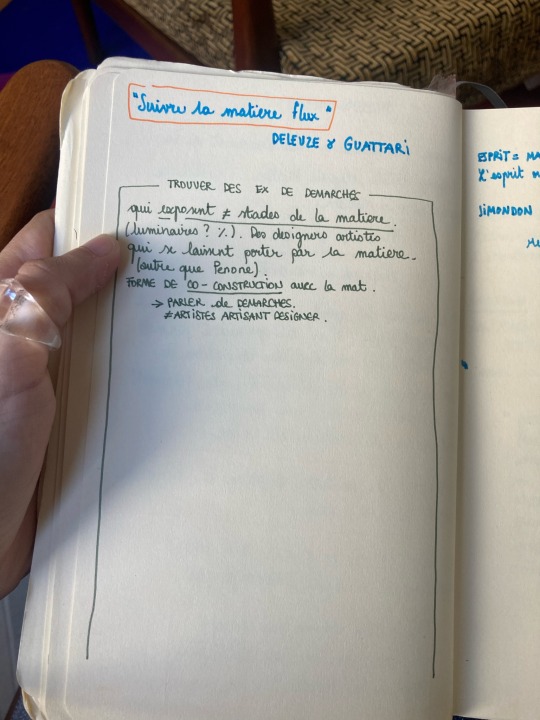 "Suivre la matiere flux"
DELEUZE & GUATTARI
TROUVER DES EX DE DEMARCHES
qui exposent ≠ stades de la matiere.
(luminaires ? %). Des designers artistes
qui se laissent porter par la matiere.
(autre que Penone).
FORME DE CO-CONSTRUCTION avec la mat.
→ PARLER de DEMARCHES.
≠ ARTISTES ARTISANT DESIGNER.
ESPRIT = MA
L'esprit
SIMONDON